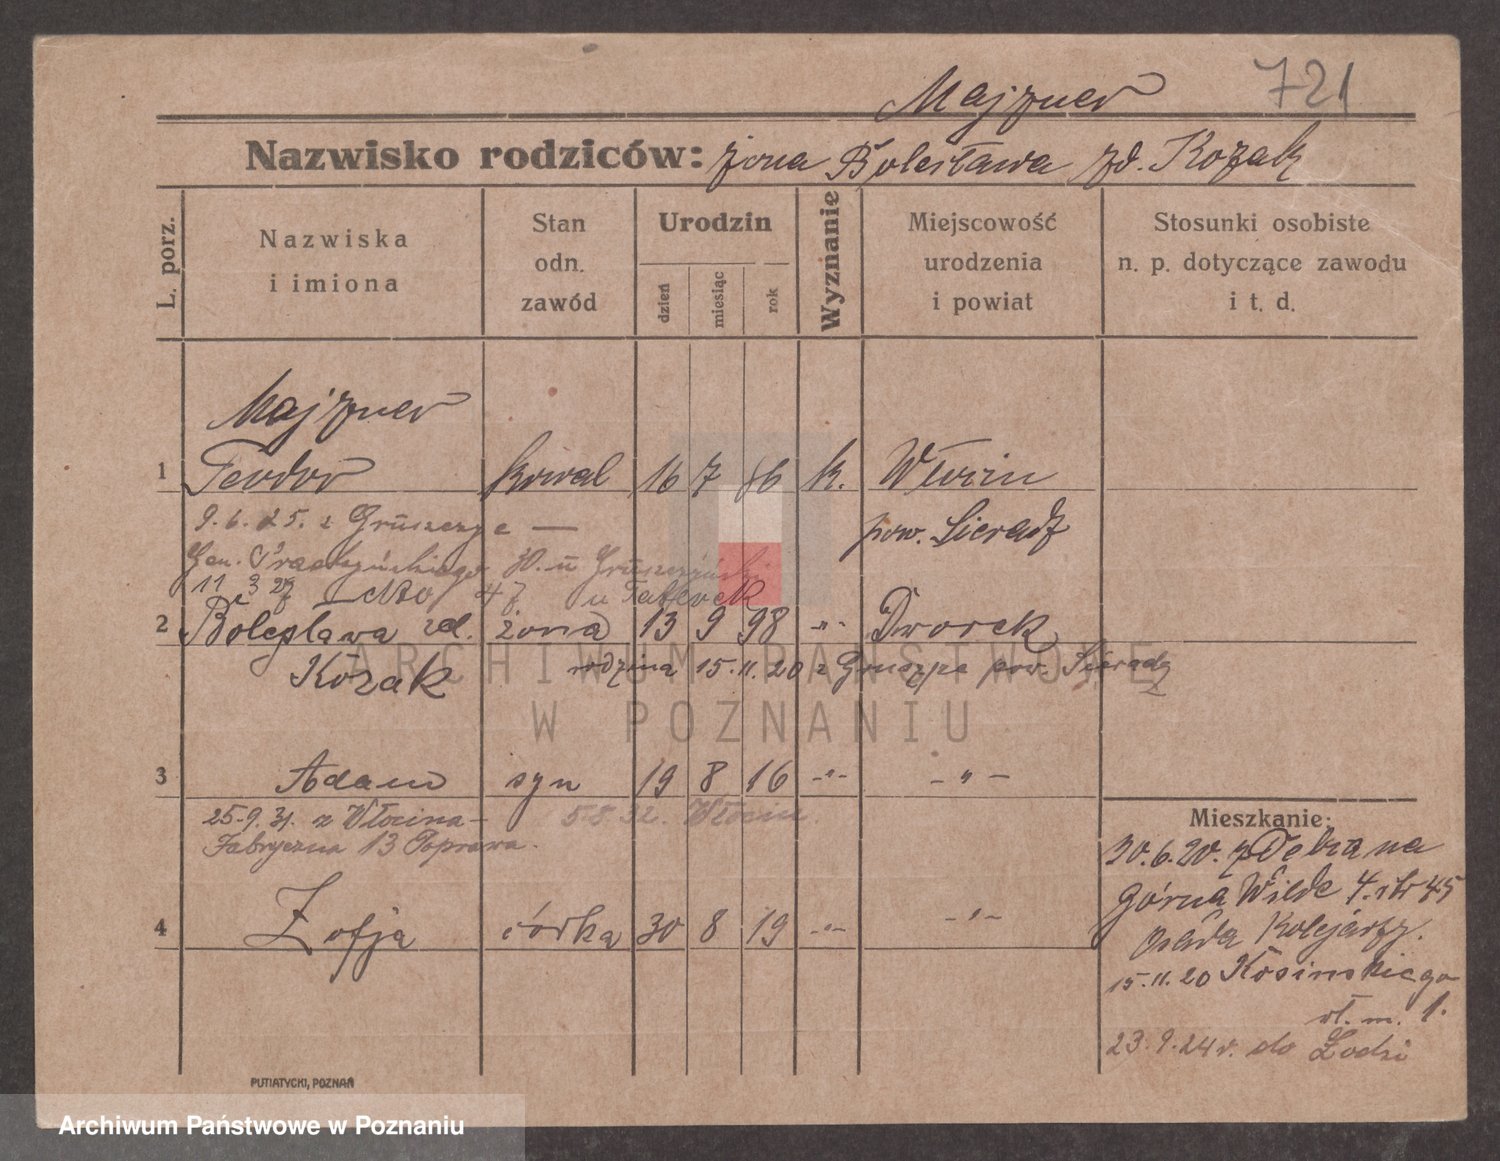 Majzner 721
Nazwisko rodziców: żona Bolesława zd. Kozak
L. porz.
Nazwiska i imiona
Stan odn. zawód
Urodzin
dzień
miesiąc
rok
Wyznanie
Miejscowość urodzenia i powiat
Stosunki osobiste n. p. dotyczące zawodu i t. d.
Majzner
1 Teodor kowal 16 7 86 k. Włocin
pow. Sieradz
9.6.25. z Gruszczyc —
Gen. Prądzyńskiego 30. u
11 3 27 47 u
2 Bolesława zd. żona 13 9 98 -"- Dworek
Kozak rodzina 15.11.20 z pow. Sieradz
3 Adam syn 19 8 16 -"- -"-
25.9.31. z Włocina – 5.8.32. Włocin.
Fabryczna 13 Poprawa.
4 Zofja córka 30 8 19 -"- -"-
Mieszkanie:
30.6.20. z
Górna Wilde 4.
Osada Kolejarzy.
15.11.20 Kosinskiego
m. 1.
23.9.24 r. do Łodzi
PUTIATYCKI, POZNAŃ
ARCHIWUM PAŃSTWOWE
W POZNANIU
Archiwum Państwowe w Poznaniu